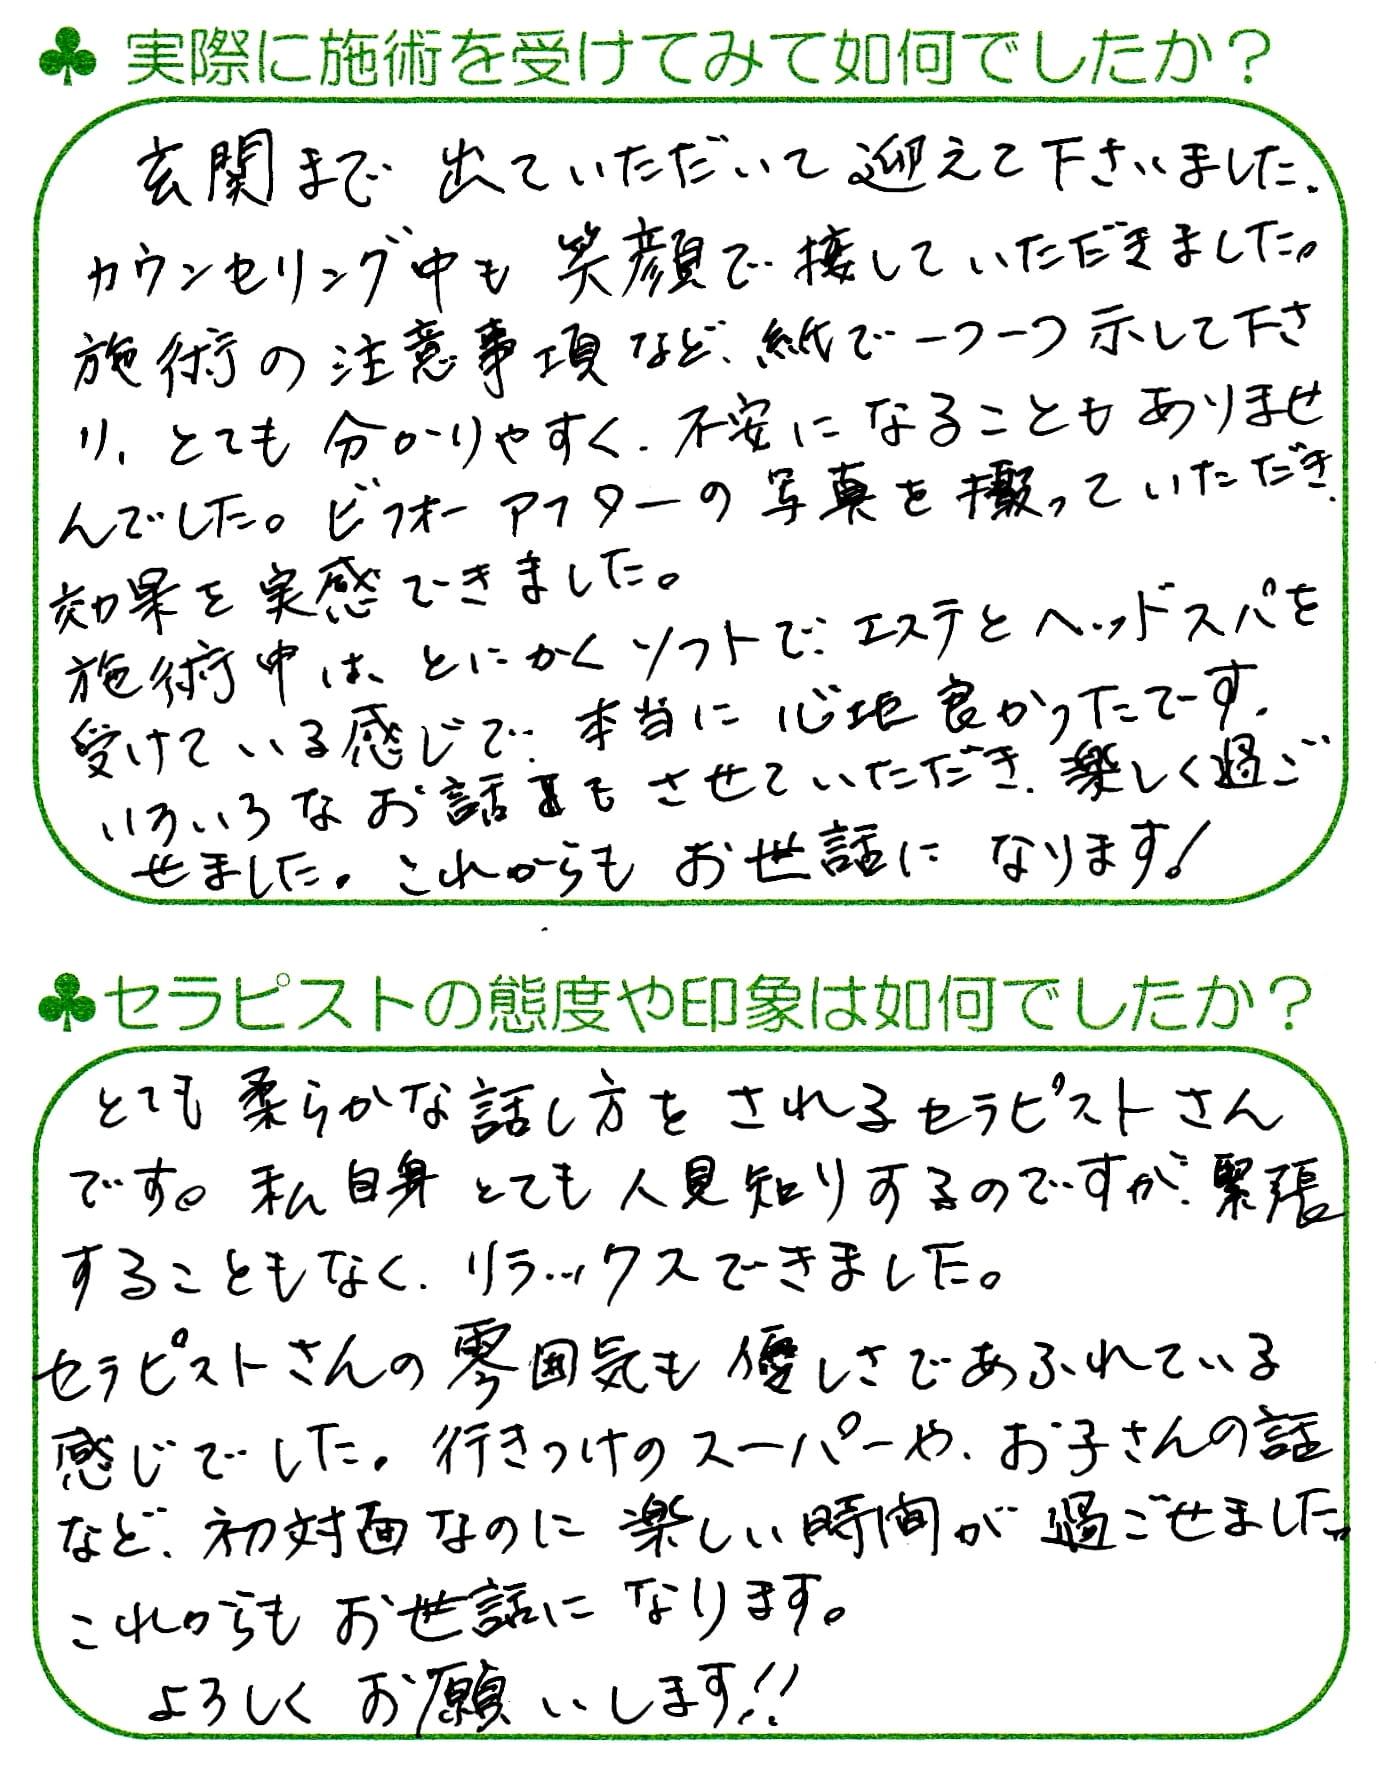 ♣ 実際に施術を受けてみて如何でしたか？
玄関まで出ていただいて迎えて下さいました、
カウンセリング中も笑顔で接していただきました。
施術の注意事項など、紙で一つ一つ示して下さ
り、とても分かりやすく、不安になることもありませ
んでした。ビフォーアフターの写真を撮っていただき、
効果を実感できました。
施術中は、とにかくソフトで、エステとヘッドスパを
受けている感じで、本当に心地良かったでーす。
いろいろなお話もさせていただき、楽しく過ご
せました。これからもお世話になります！
♣ セラピストの態度や印象は如何でしたか？
とても柔らかな話し方をされるセラピストさん
です。私自身とても人見知りするのですが、緊張
することもなく、リラックスできました。
セラピストさんの雰囲気も優しさであふれている
感じでした。行きつけのスーパーや、お子さんの話
など、初対面なのに楽しい時間が過ごせました。
これからもお世話になります。
よろしくお願いします!!